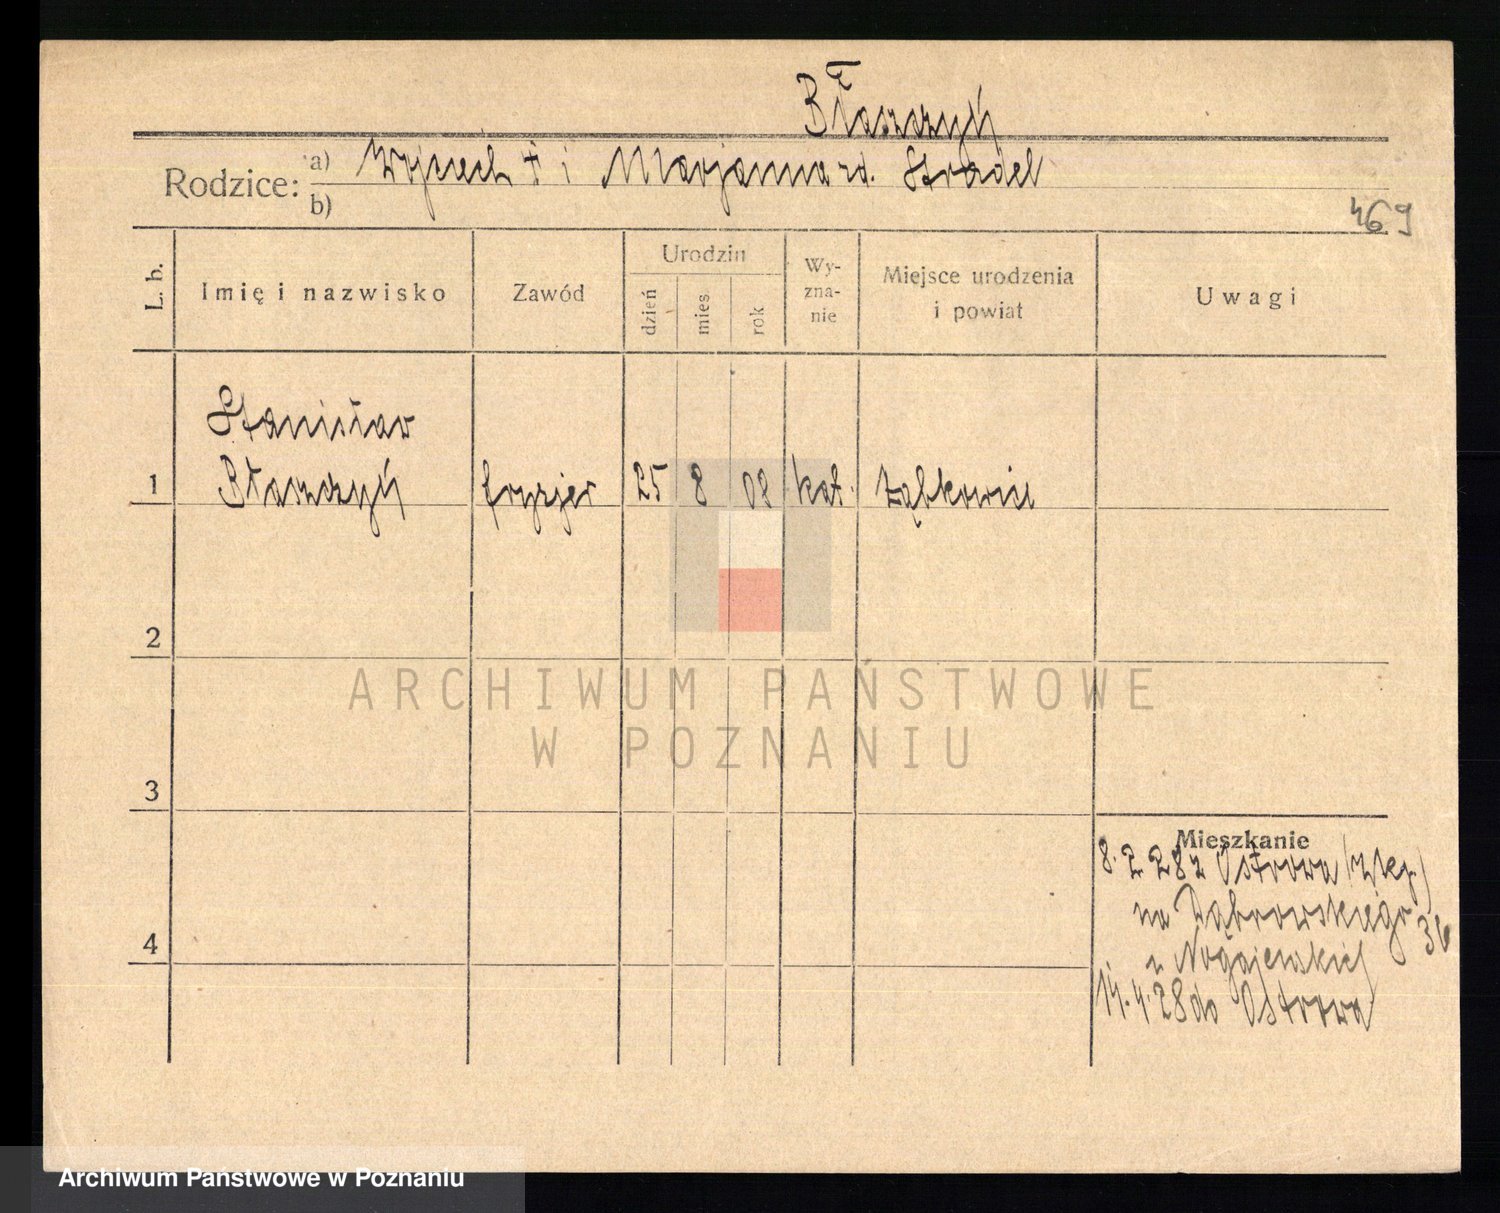 Błaszczyk
Rodzice: a) Wojciech † i Marjanna zd. Stradel
b)
469
L. b.
Imię i nazwisko
Zawód
Urodzin
dzień
mies
rok
Wy-
zna-
nie
Miejsce urodzenia
i powiat
Uwagi
Stanisław
1 Błaszczyk fryzjer 25 8 08 kat. Ząbkowice
2
ARCHIWUM PAŃSTWOWE
W POZNANIU
3
Mieszkanie
8. 2 28 z Ostrowa (Wlkp.)
na Dąbrowskiego 36
u Nogajewskich
4
14. 4. 28 do Ostrowa
Archiwum Państwowe w Poznaniu